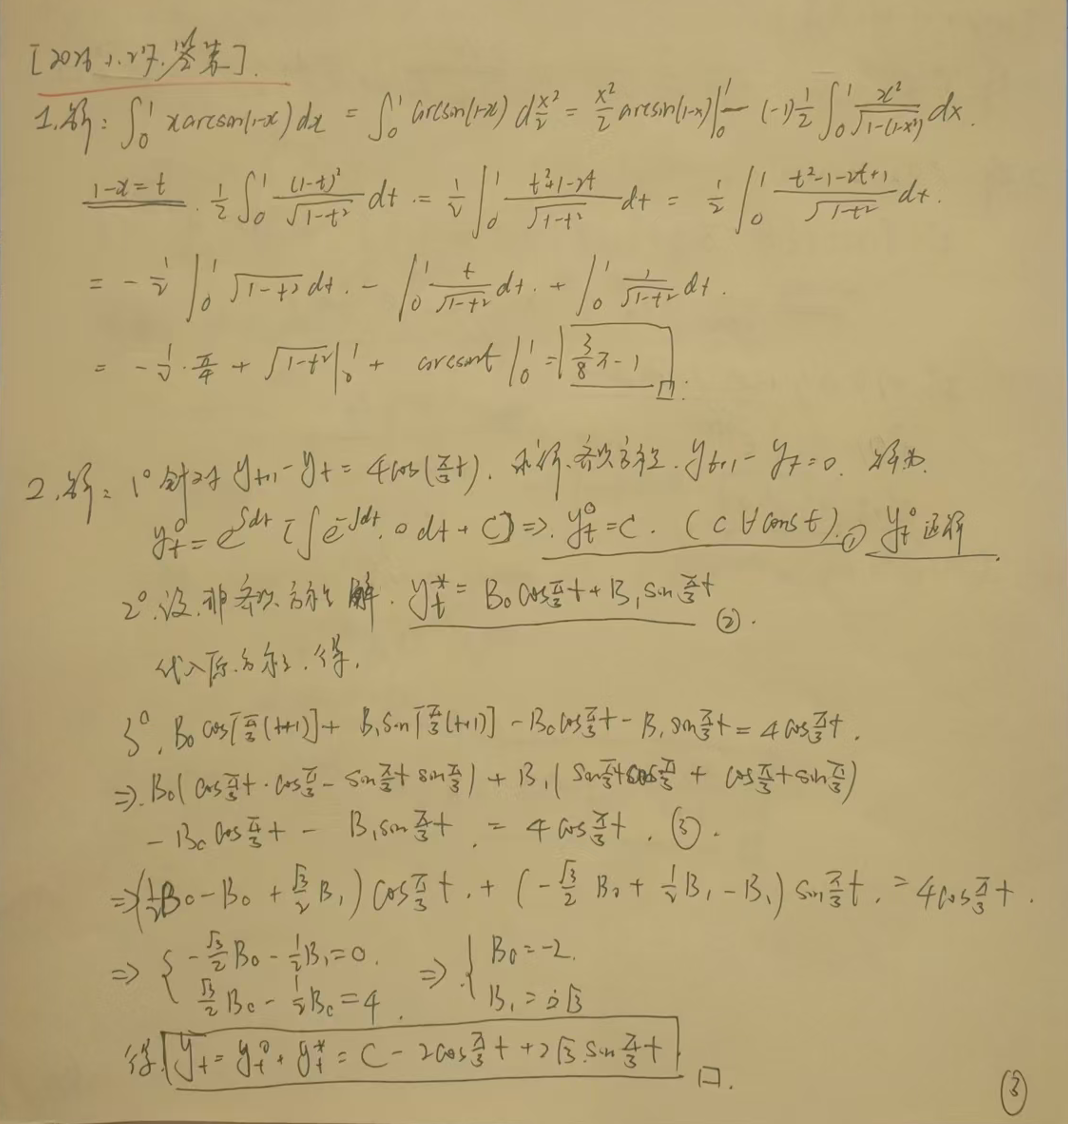 [2026.1.27.答案].
1.解: ∫₀¹ x arcsin(1-x) dx = ∫₀¹ arcsin(1-x) d x²/2 = x²/2 arcsin(1-x)|₀¹ - (-1) 1/2 ∫₀¹ x²/√(1-(1-x)²) dx.
1-x=t. 1/2 ∫₀¹ (1-t)²/√(1-t²) dt. = 1/2 ∫₀¹ (t²+1-2t)/√(1-t²) dt = 1/2 ∫₀¹ (t²-1-2t+1)/√(1-t²) dt.
= -1/2 ∫₀¹ √(1-t²) dt. - ∫₀¹ t/√(1-t²) dt. + ∫₀¹ 1/√(1-t²) dt.
= -1/2·π/4 + √(1-t²)|₀¹ + arcsint|₀¹ = 3/8 π - 1 □.
2.解: 1° 针对 yₜ₊₁ - yₜ = 4cos(π/3 t). 求解.齐次方程. yₜ₊₁ - yₜ = 0. 解为.
yₜ⁰ = e^∫dt [∫e^-∫dt · 0 dt + C] ⇒ yₜ⁰ = C. (C ∀ const). ① yₜ⁰ 通解
2°.设.非齐次.方程 解. yₜ* = B₀cosπ/3 t + B₁sinπ/3 t ②.
代入原.方程.得.
3°. B₀cos[π/3(t+1)] + B₁sin[π/3(t+1)] - B₀cosπ/3 t - B₁sinπ/3 t = 4cosπ/3 t.
⇒ B₀(cosπ/3 t·cosπ/3 - sinπ/3 t sinπ/3) + B₁(sinπ/3 t cosπ/3 + cosπ/3 t sinπ/3)
- B₀cosπ/3 t - B₁sinπ/3 t. = 4cosπ/3 t. ③.
⇒ (1/2 B₀ - B₀ + √3/2 B₁) cosπ/3 t. + (-√3/2 B₀ + 1/2 B₁ - B₁) sinπ/3 t. = 4cosπ/3 t.
⇒ { -√3/2 B₀ - 1/2 B₁ = 0. ⇒ { B₀ = -2.
√3/2 B₀ - 1/2 B₀ = 4. B₁ = 2√3
得. yₜ = yₜ⁰ + yₜ* = C - 2cosπ/3 t + 2√3 sinπ/3 t □.
③